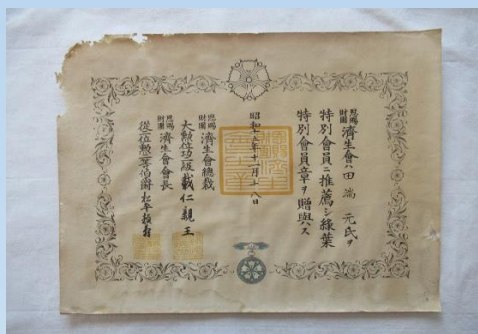 恩賜財團 濟生會ハ田 端 元氏ヲ
特別會員ニ推薦シ綠葉
特別會員章ヲ贈與ス
昭和十三年十一月十八日
恩賜財團 濟生會總裁
大勲位功一級載仁親王
恩賜財團 濟生會會長
從二位勲一等伯爵松平賴壽